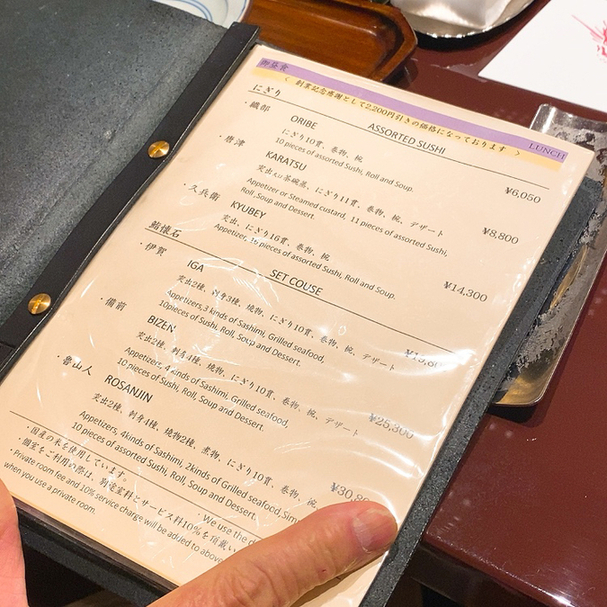 御昼食
〈 創業記念感謝として2,200円引きの価格になっております 〉
LUNCH
にぎり
ASSORTED SUSHI
・織部 ORIBE ¥6,050
にぎり10貫、巻物、椀
10 pieces of assorted Sushi, Roll and Soup.
・唐津 KARATSU ¥8,800
突出又は茶碗蒸、にぎり11貫、巻物、椀、デザート
Appetizer or Steamed custard, 11 pieces of assorted Sushi,
Roll ,Soup and Dessert.
・久兵衛 KYUBEY ¥14,300
突出、にぎり16貫、巻物、椀
Appetizer, 16 pieces of assorted Sushi, Roll and Soup.
鮨懐石
SET COUSE
・伊賀 IGA
突出2種、刺身3種、焼物、にぎり10貫、巻物、椀、デザート
Appetizers,3 kinds of Sashimi, Grilled seafood,
10pieces of Sushi, Roll, Soup and Dessert.
・備前 BIZEN ¥25,300
突出2種、刺身4種、焼物、にぎり10貫、巻物、椀、デザート
Appetizers, 4 kinds of Sashimi, Grilled seafood,
10 pieces of Sushi, Roll, Soup and Dessert.
・魯山人 ROSANJIN
突出2種、刺身4種、焼物2種、煮物、にぎり10貫、巻物、椀、
Appetizers, 4kinds of Sashimi, 2kinds of Grilled seafood,
10 pieces of assorted Sushi, Roll, Soup and Dessert
・国産の米を使用しています。 ・We use the
・個室をご利用の際は、別途室料とサービス料10%を頂戴い
・Private room fee and 10% service charge will be added to above
when you use a private room.